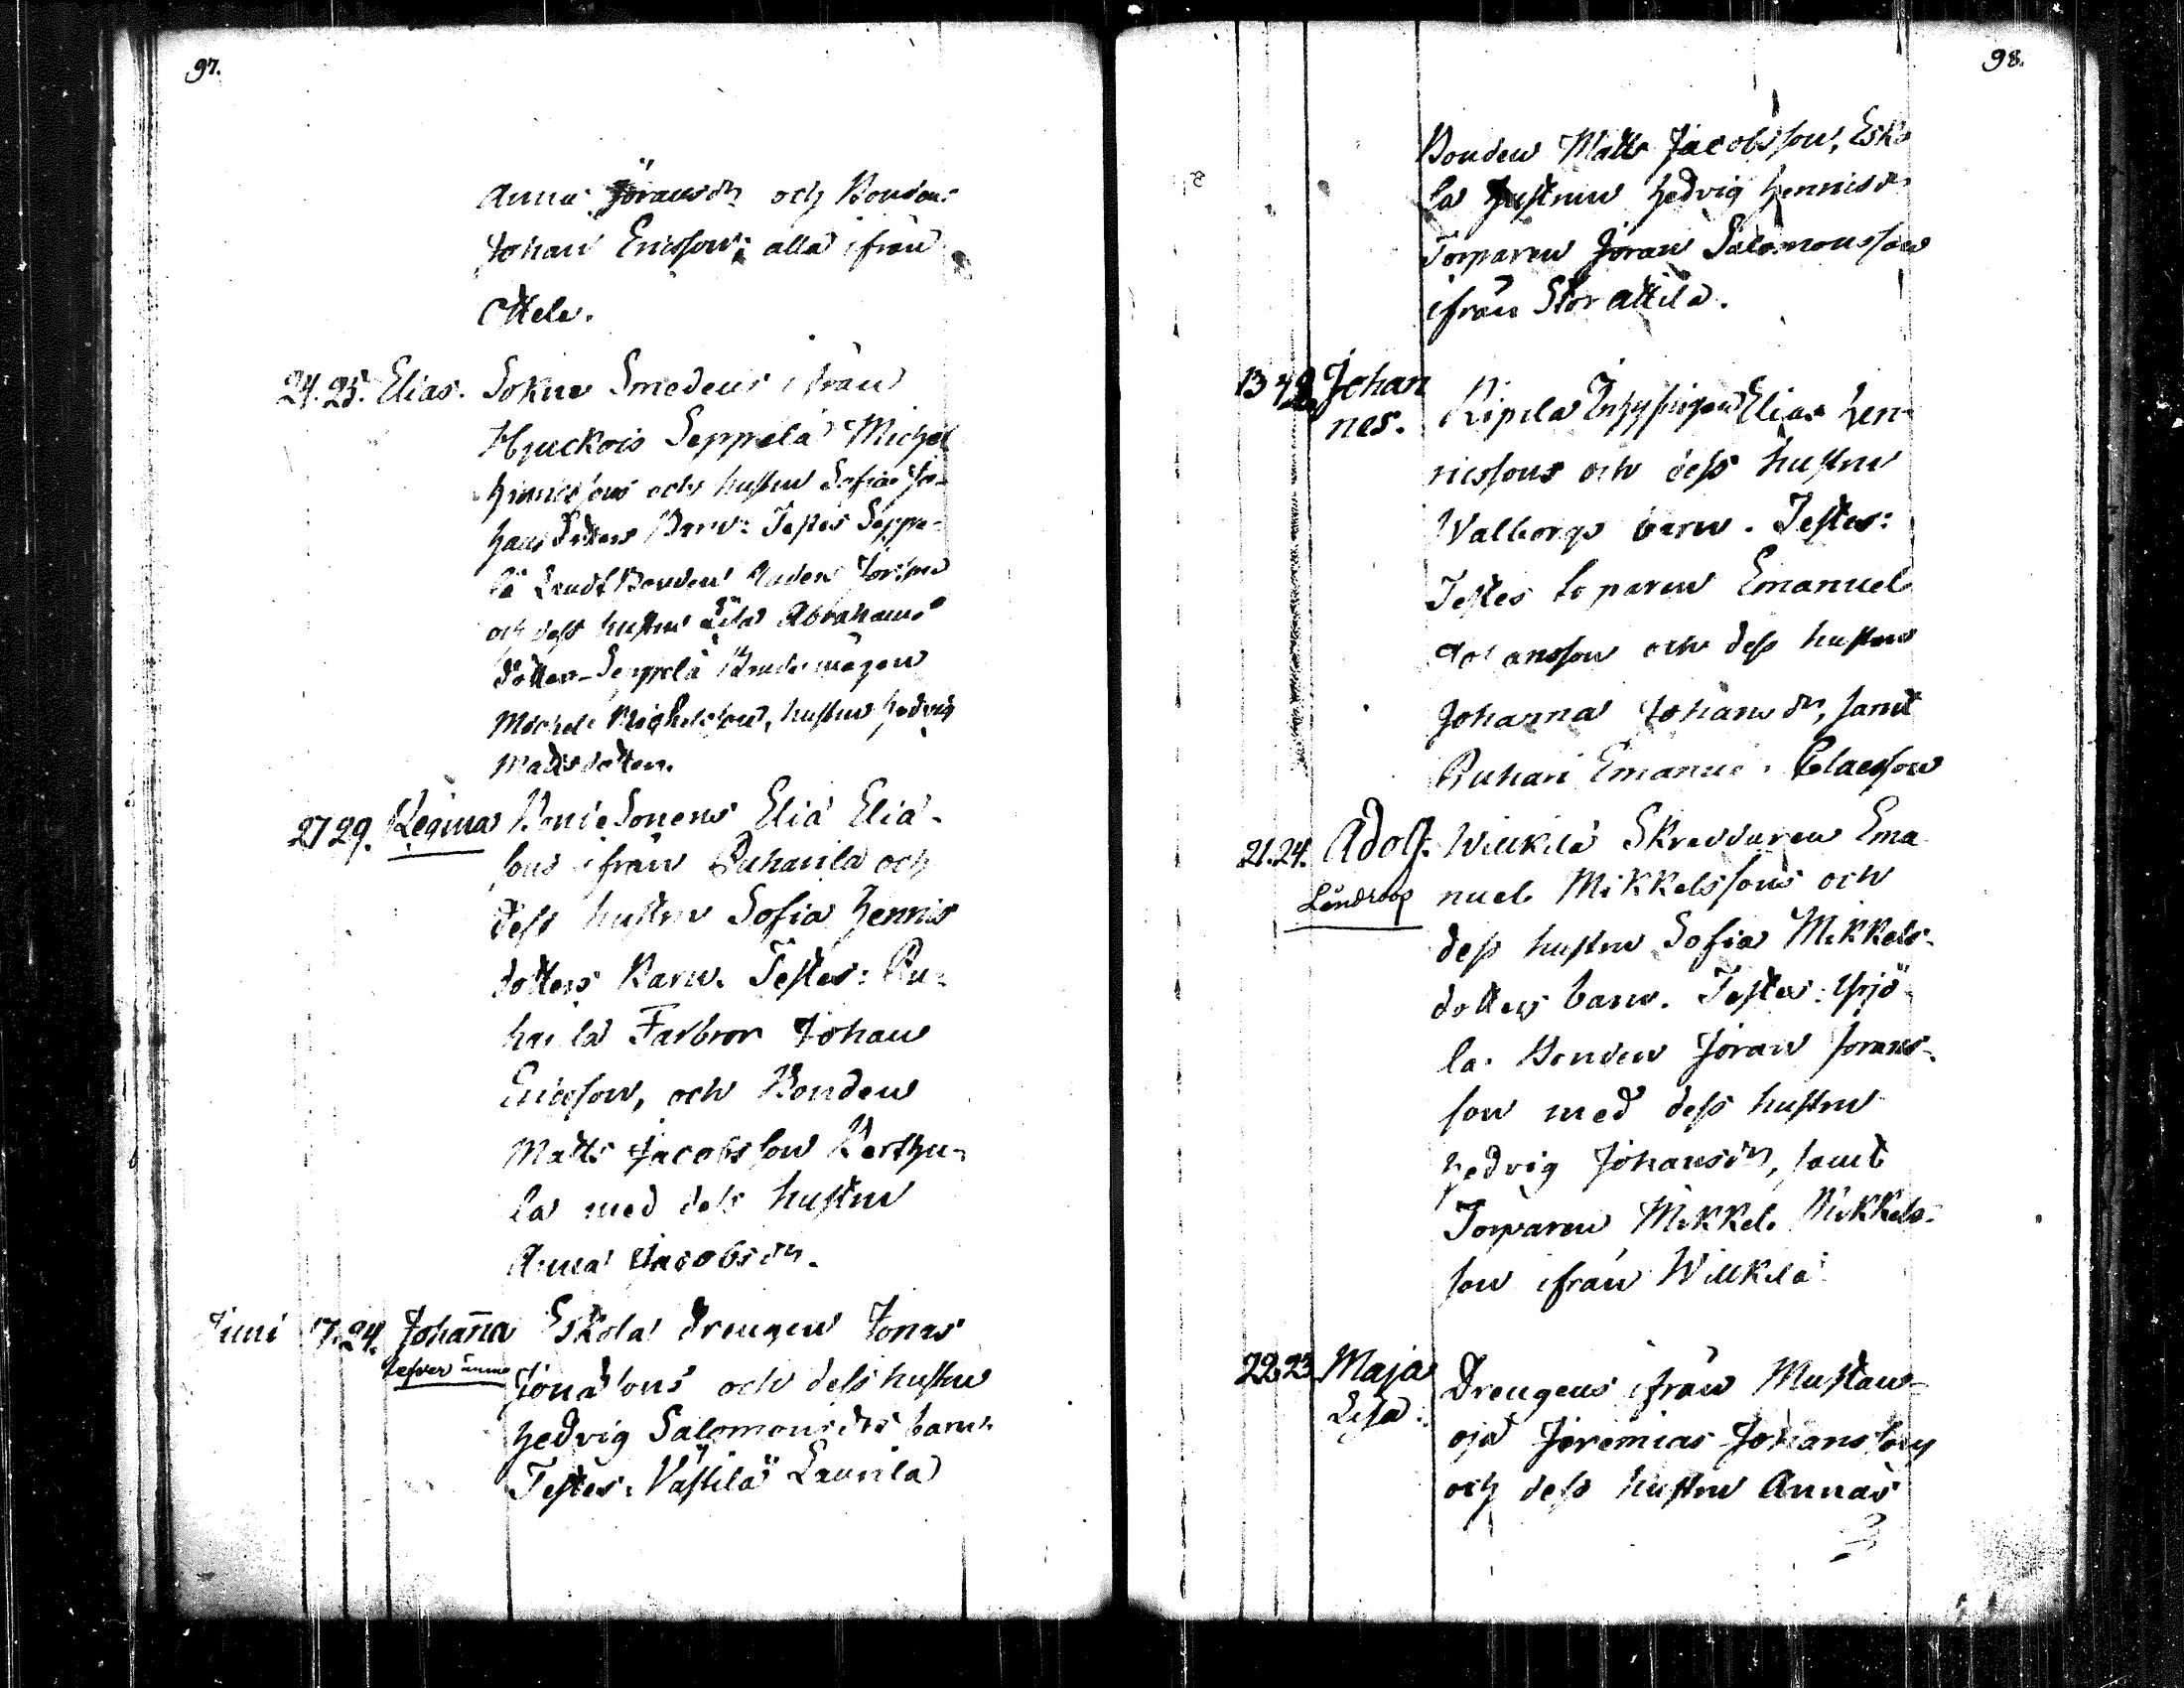 97.
Anna Jöransdr och Bonden
Johan Ericsson; alla ifrån
Ottela.
24. 25. Elias. Sokne Smedens ifrån
Hjuckois Seppelä Michel
Henricssons och hustru Sofia Jo-
hansdotters Barn: Testes Seppe-
lä Bonden
och dess hustru Lisa Abrahams
dotter - Seppelä
Michel Michelsson, hustru Hedvig
Mattsdotter.
27 29. Regina Bonde Sonens Elia Elia-
sons ifrån Puhanila och
dess hustru Sofia Henrics
dotters Barn. Testes: Pu-
hanila Farbror Johan
Ericsson, och Bonden
Matts Jacobsson Berthu-
la med dess hustru
Anna Jacobsdr.
Juni 17. 24. Johanna Eskola Drengen Jonas
Jonassons och dess hustru
Hedvig Salomonsdrs barn
Testes: Västilä Laurila
98.
Bonden Matts Jacobsson, Esko
la Hustrun Hedvig Henricsdr
Torparen Jöran Salomonsson
ifrån Storattila.
13 Johan
nes. Ripila Inhysingen Elias Hen-
ricssons och dess hustru
Walborgs barn. Testes:
Testes toparen Emanuel
Johansson och dess hustru
Johanna Johansdr, samt
Puhari Emanuel Claesson
21. 24. Adolf. Willkilä Skreddaren Ema
Landtog nuel Mikkelssons och
dess hustru Sofia Mikkels-
dotters barn. Testes: Yrjö-
la Bonden Jöran Jörans-
son med dess hustru
Hedvig Johansdr, samt
Torparen Mikkel Mikkels-
son ifrån Willkilä
22. 23 Maja
Lisa. Drengens ifrån Mustan-
oja Jeremias Johansson
och dess hustru Annas